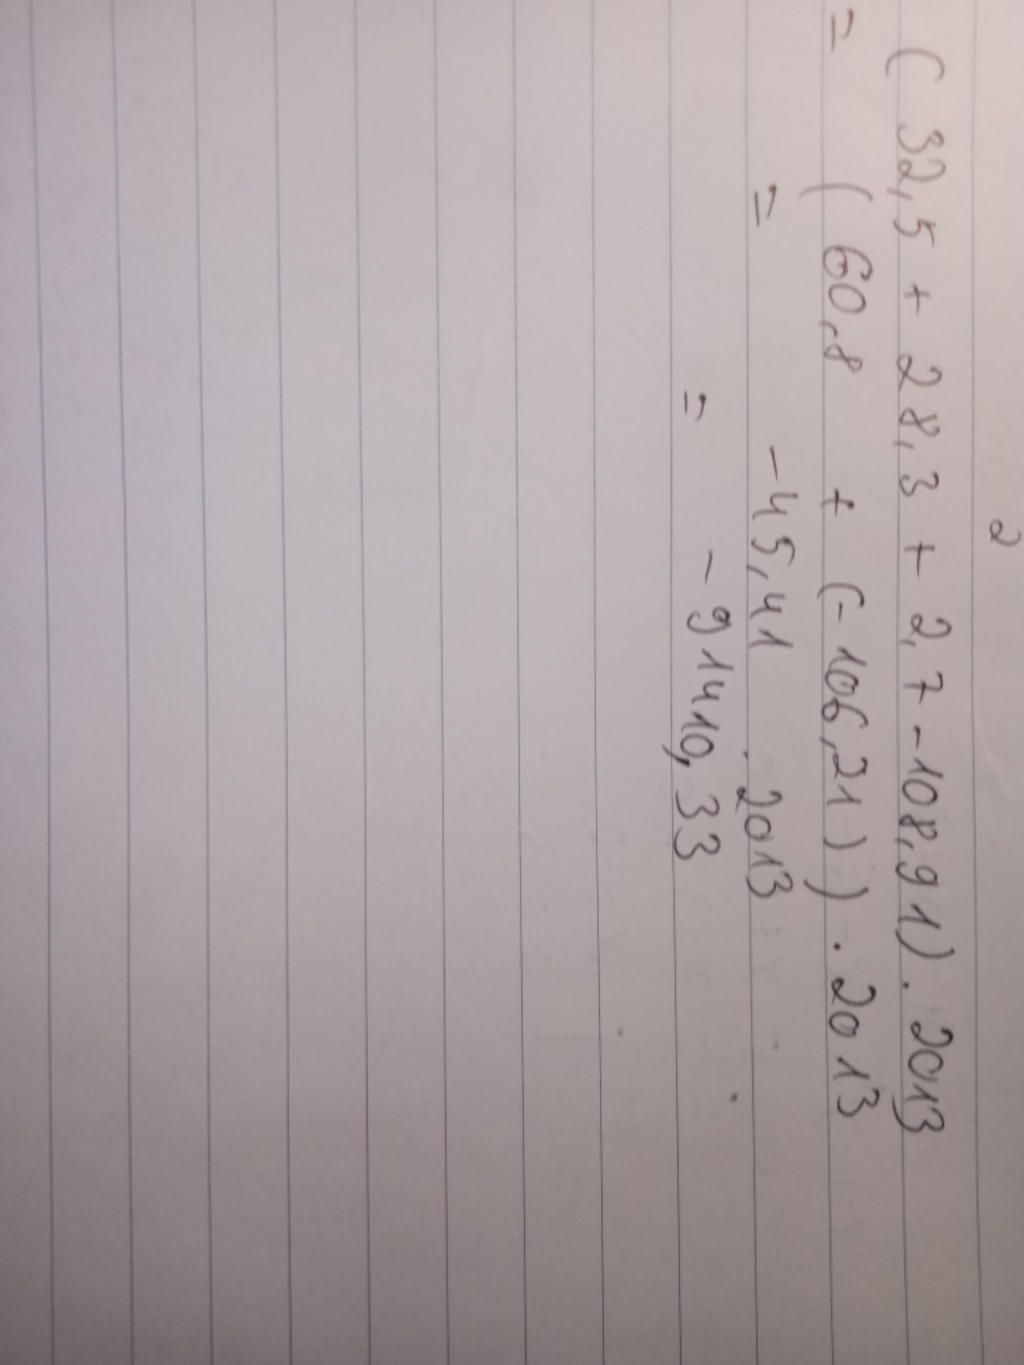 2
(32,5 + 28,3 + 2,7 - 108,91) . 2013
= (60,8 + (-106,21)) . 2013
= -45,41 . 2013
= -91410,33